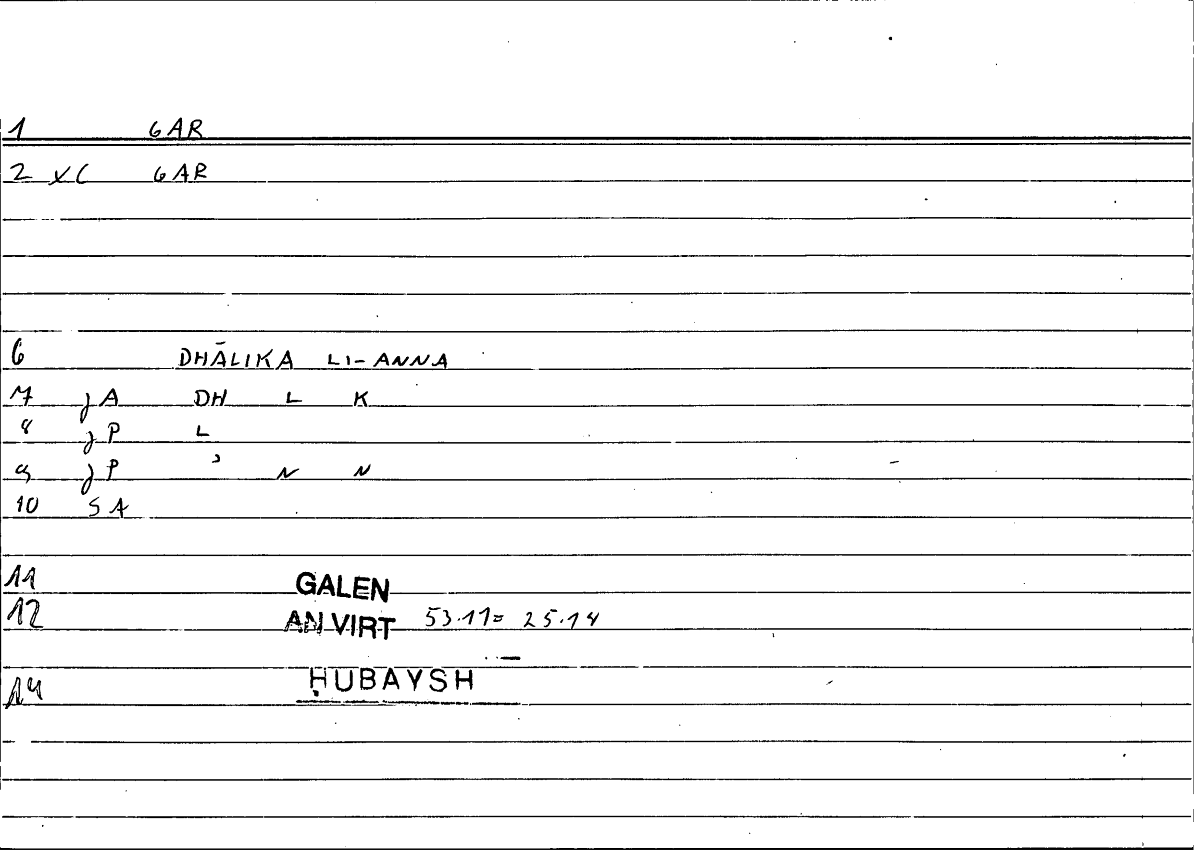 1 GAR
2 XC GAR
6 DHĀLIKA LI-ANNA
7 jA DH L K
8 jP L
9 jP ʾ N N
10 SA
11 GALEN
12 AN VIRT 53.11= 25.14
14 ḤUBAYSH